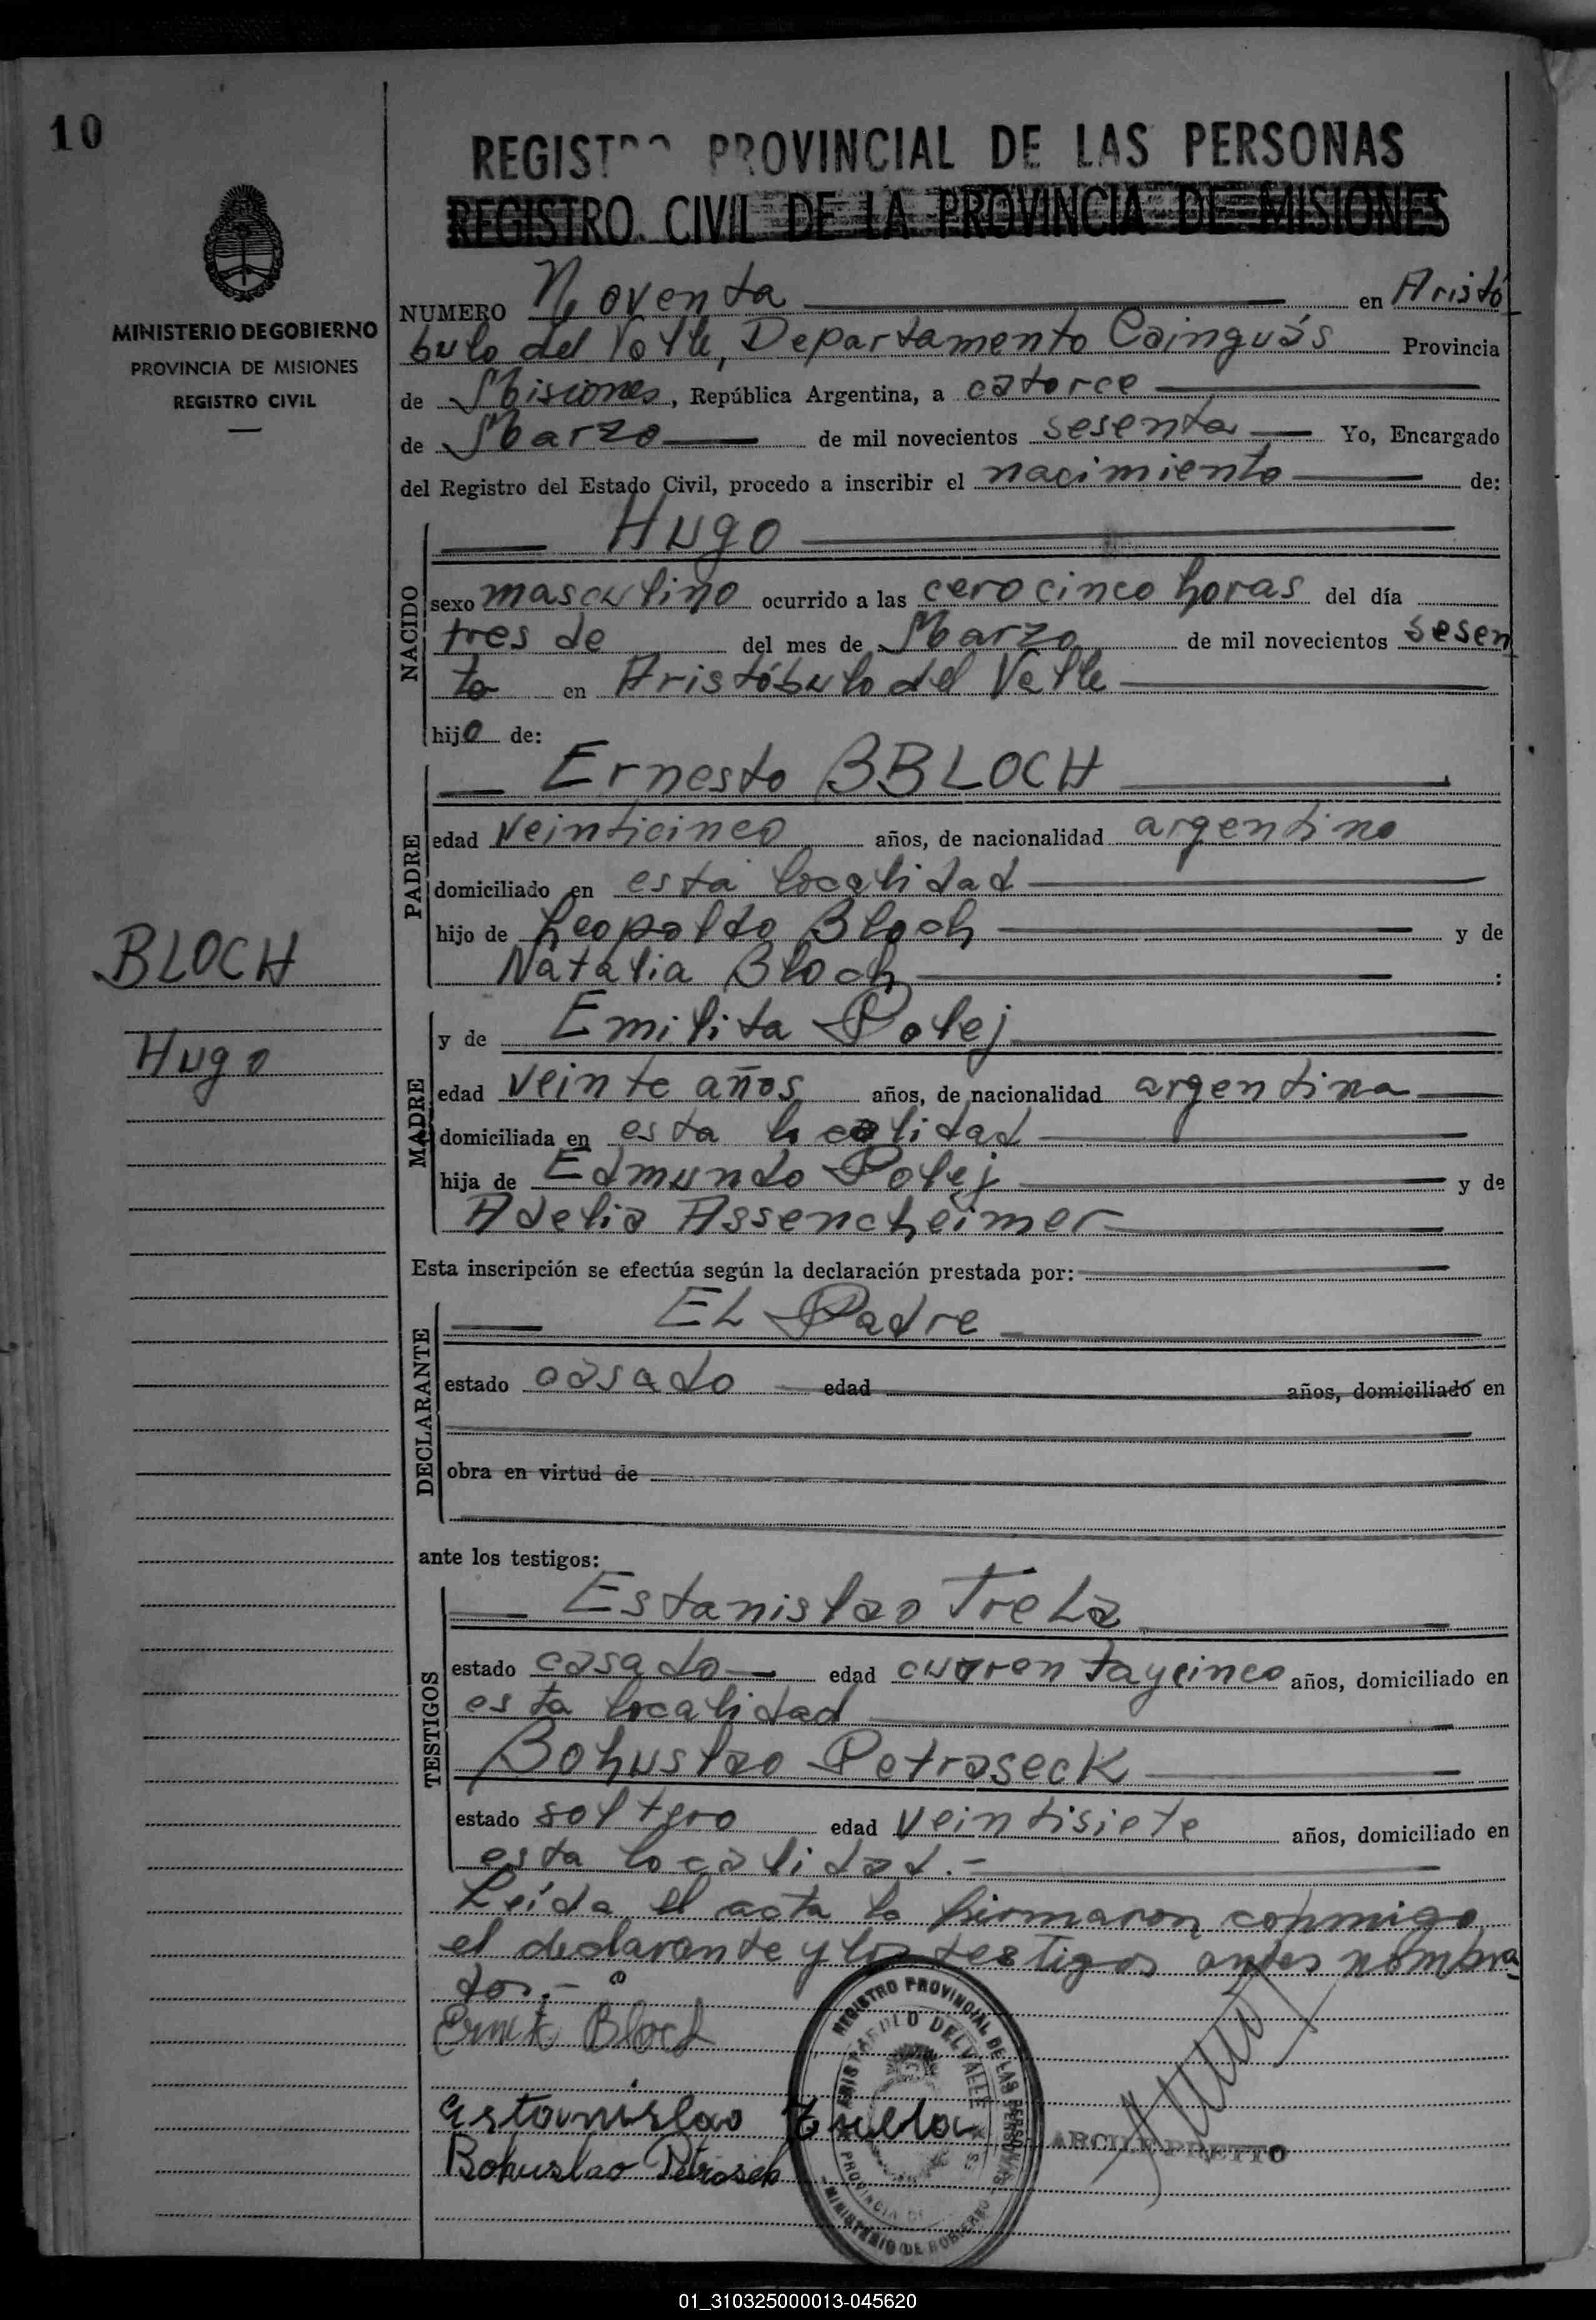 10
REGISTRO PROVINCIAL DE LAS PERSONAS
REGISTRO CIVIL DE LA PROVINCIA DE MISIONES
MINISTERIO DE GOBIERNO
PROVINCIA DE MISIONES
REGISTRO CIVIL
NUMERO Noventa en Aristó
bulo del Valle, Departamento Cainguás Provincia
de Misiones, República Argentina, a catorce
de Marzo de mil novecientos sesenta Yo, Encargado
del Registro del Estado Civil, procedo a inscribir el nacimiento de:
NACIDO
Hugo
sexo masculino ocurrido a las cero cinco horas del día
tres de del mes de Marzo de mil novecientos sesen
ta en Aristóbulo del Valle
hijo de:
PADRE
Ernesto BBLOCH
edad veinticinco años, de nacionalidad argentino
domiciliado en esta localidad
hijo de Leopoldo Bloch y de
Natalia Bloch :
BLOCH
Hugo
MADRE
y de Emilita Polej
edad veinte años años, de nacionalidad argentina
domiciliada en esta localidad
hija de Edmundo Polej y de
Adelia Assencheimer
Esta inscripción se efectúa según la declaración prestada por:
DECLARANTE
EL Padre
estado casado edad años, domiciliado en
obra en virtud de
ante los testigos:
TESTIGOS
Estanislao TreLa
estado casado edad cuarentaycinco años, domiciliado en
esta localidad
Bohuslao Petraseck
estado soltero edad veintisiete años, domiciliado en
esta localidad.-
Leída el acta la firmaron conmigo
el declarante y los testigos antes nombra
dos.-
Ernst Bloch
Estanislao Trela
Bohuslao Petrasek
REGISTRO PROVINCIAL DE LAS PERSONAS
ARISTOBULO DEL VALLE
PROVINCIA DE MISIONES
MINISTERIO DE GOBIERNO
PRETTO
01_310325000013-045620